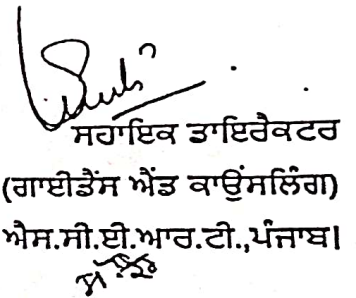 ਸਹਾਇਕ ਡਾਇਰੈਕਟਰ
(ਗਾਈਡੈਂਸ ਐਂਡ ਕਾਉਂਸਲਿੰਗ)
ਐਸ.ਸੀ.ਈ.ਆਰ.ਟੀ.,ਪੰਜਾਬ।